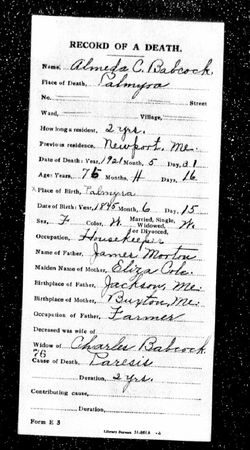 RECORD OF A DEATH.
Name, Almeda C. Babcock
Place of Death, Palmyra
No. Street
Ward, Village,
How long a resident, 2 yrs.
Previous residence, Newport, Me.
Date of Death: Year, 1921 Month, 5 Day, 31
Age: Years, 76 Months, 4 Days, 16
Place of Birth, Palmyra
Date of Birth: Year, 1845 Month, 6 Day, 15
Sex, F Color, W. Married, Single, Widowed, or Divorced, W.
Occupation, Housekeeper
Name of Father, James Morton
Maiden Name of Mother, Eliza Cole
Birthplace of Father, Jackson, Me.
Birthplace of Mother, Buxton, Me.
Occupation of Father, Farmer
Deceased was wife of
Widow of Charles Babcock
76
Cause of Death, Paresis
Duration, 2 yrs.
Contributing cause,
Duration,
Form E 3
Library Bureau